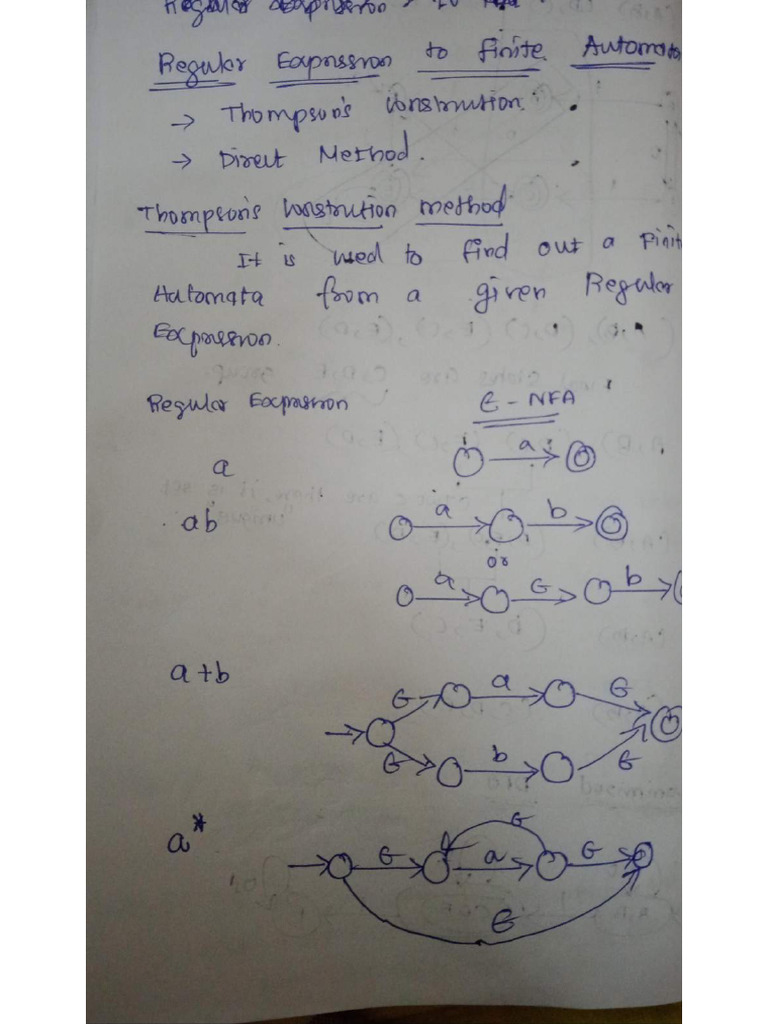 Regular Expression to Finite Automata
→ Thompson's Construction.
→ Direct Method.
Thompson's Constrution method
It is used to find out a Finit
Automata from a given Regular
Expression.
Regular Expression ε-NFA
a
a
ab
a b
or
a ε b
a+b
ε a ε
ε b ε
a*
ε
ε a ε
ε